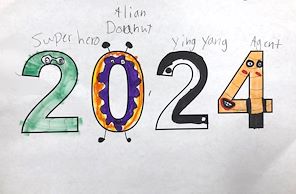 Alian
Doughnut
Super hero
Ying Yang
Agent
2024